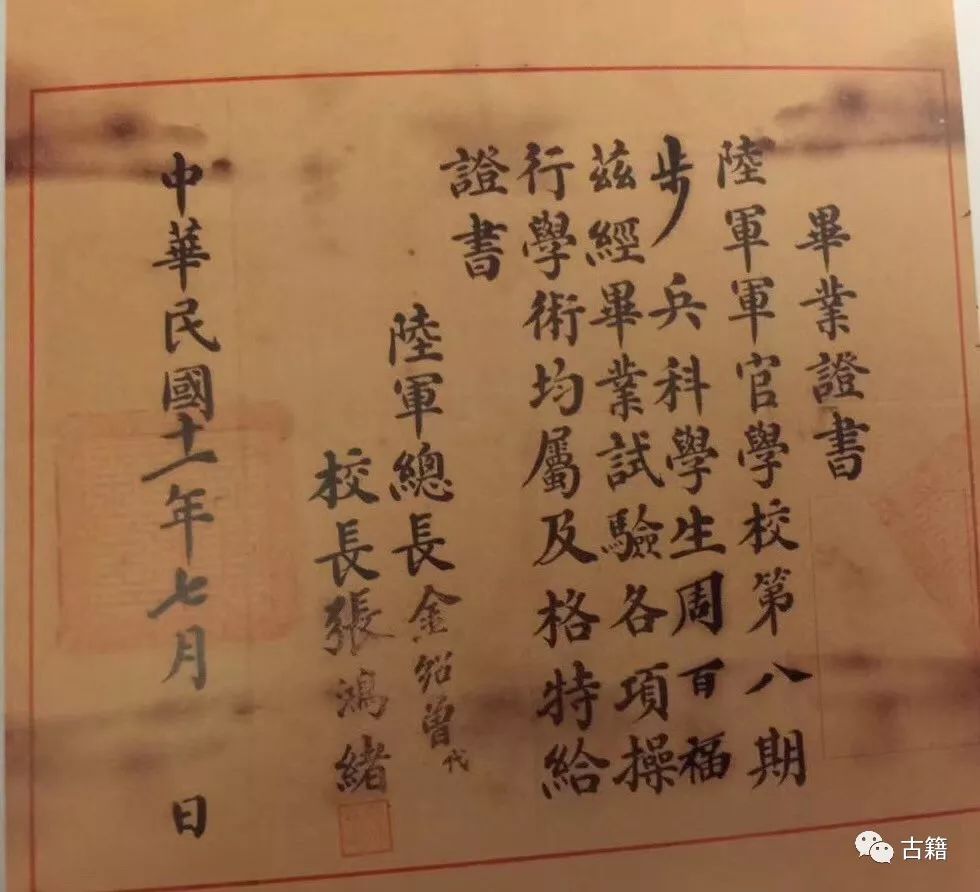 畢業證書
陸軍軍官學校第八期
步兵科學生周百福
茲經畢業試驗各項操
行學術均屬及格特給
證書
陸軍總長金紹曾代
校長張鴻緒
中華民國十一年七月 日
古籍